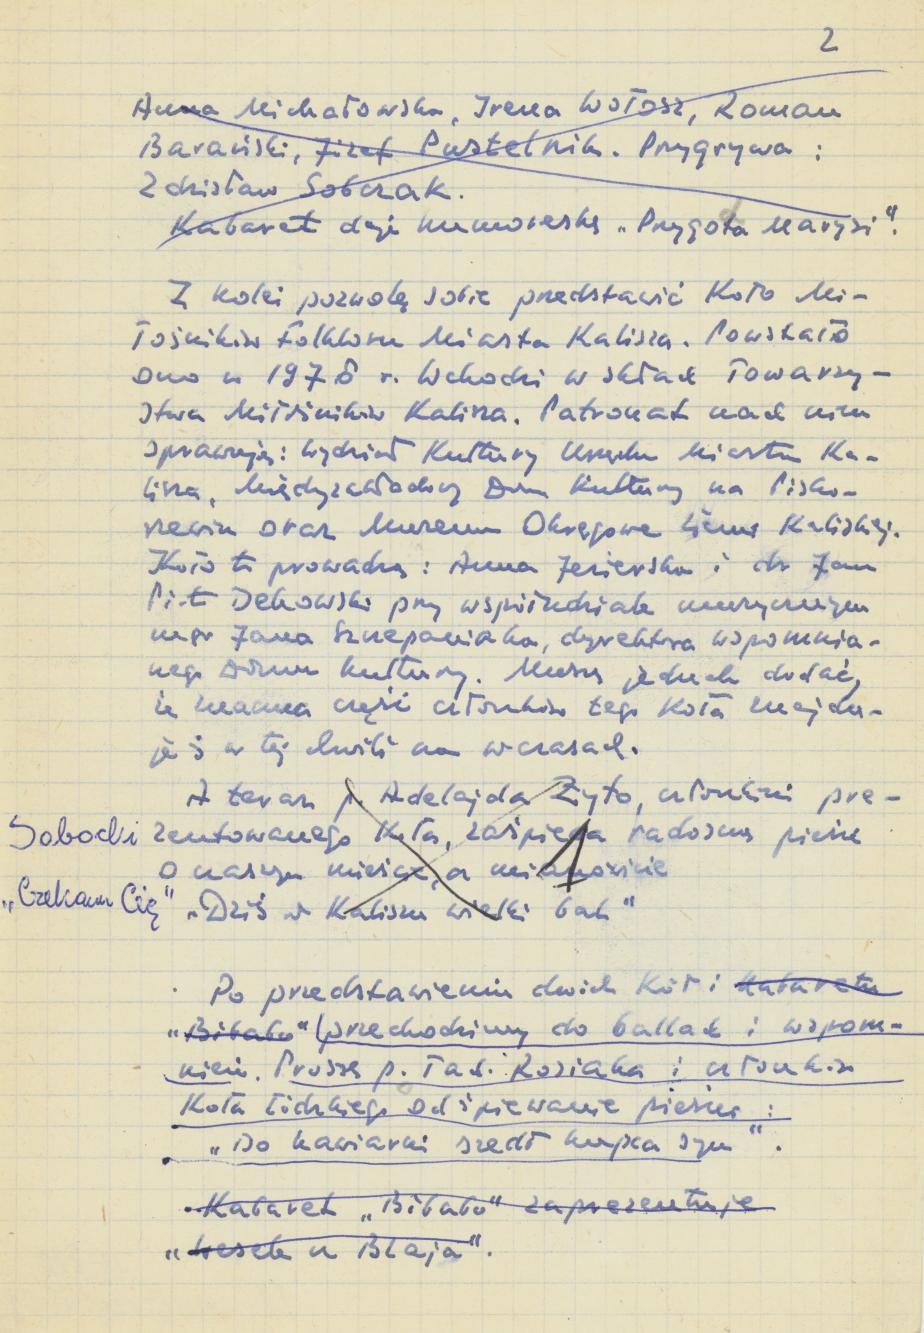 2
Anna Michałowska, Irena Wołosz, Roman
Barański, Józef Pustelnik. Przygrywa :
Zdzisław Sobczak.
Kabaret daje humoreskę „Przygoda Marysi".
Z kolei pozwolę sobie przedstawić Koło Mi-
łośników Folkloru Miasta Kalisza. Powstało
ono w 1978 r. Wchodzi w skład Towarzy-
stwa Miłośników Kalisza. Patronat nad nim
sprawują: Wydział Kultury Urzędu Miasta Ka-
lisza, Międzyzakładowy Dom Kultury na Pisko-
rzewiu oraz Muzeum Okręgowe Ziemi Kaliskiej.
Koło to prowadzą: Anna Jezierska i dr Jan
Piotr Dekowski przy współudziale muzycznym
mgr Jana Szczepaniaka, dyrektora wspomnia-
nego Domu Kultury. Muszę jednak dodać,
że znaczna część członków tego Koła znajdu-
je się w tej chwili na wczasach.
A teraz p. Adelajda Żyto, członkini pre-
Sobocki zentowanego Koła, zaśpiewa radosną pieśń
o naszym mieście, a mianowicie 1
„Czekam Cię" „Dziś w Kaliszu wielki bal"
Po przedstawieniu dwóch Kół i Kabaretu
„Bibabo" przechodzimy do ballad i wspom-
nień. Proszę p. Tad. Roziaka i członków
Koła Łódzkiego o odśpiewanie pieśni :
„Do kawiarni szedł kupca syn".
Kabaret „Bibabo" zaprezentuje
„Wesele u Błaja".